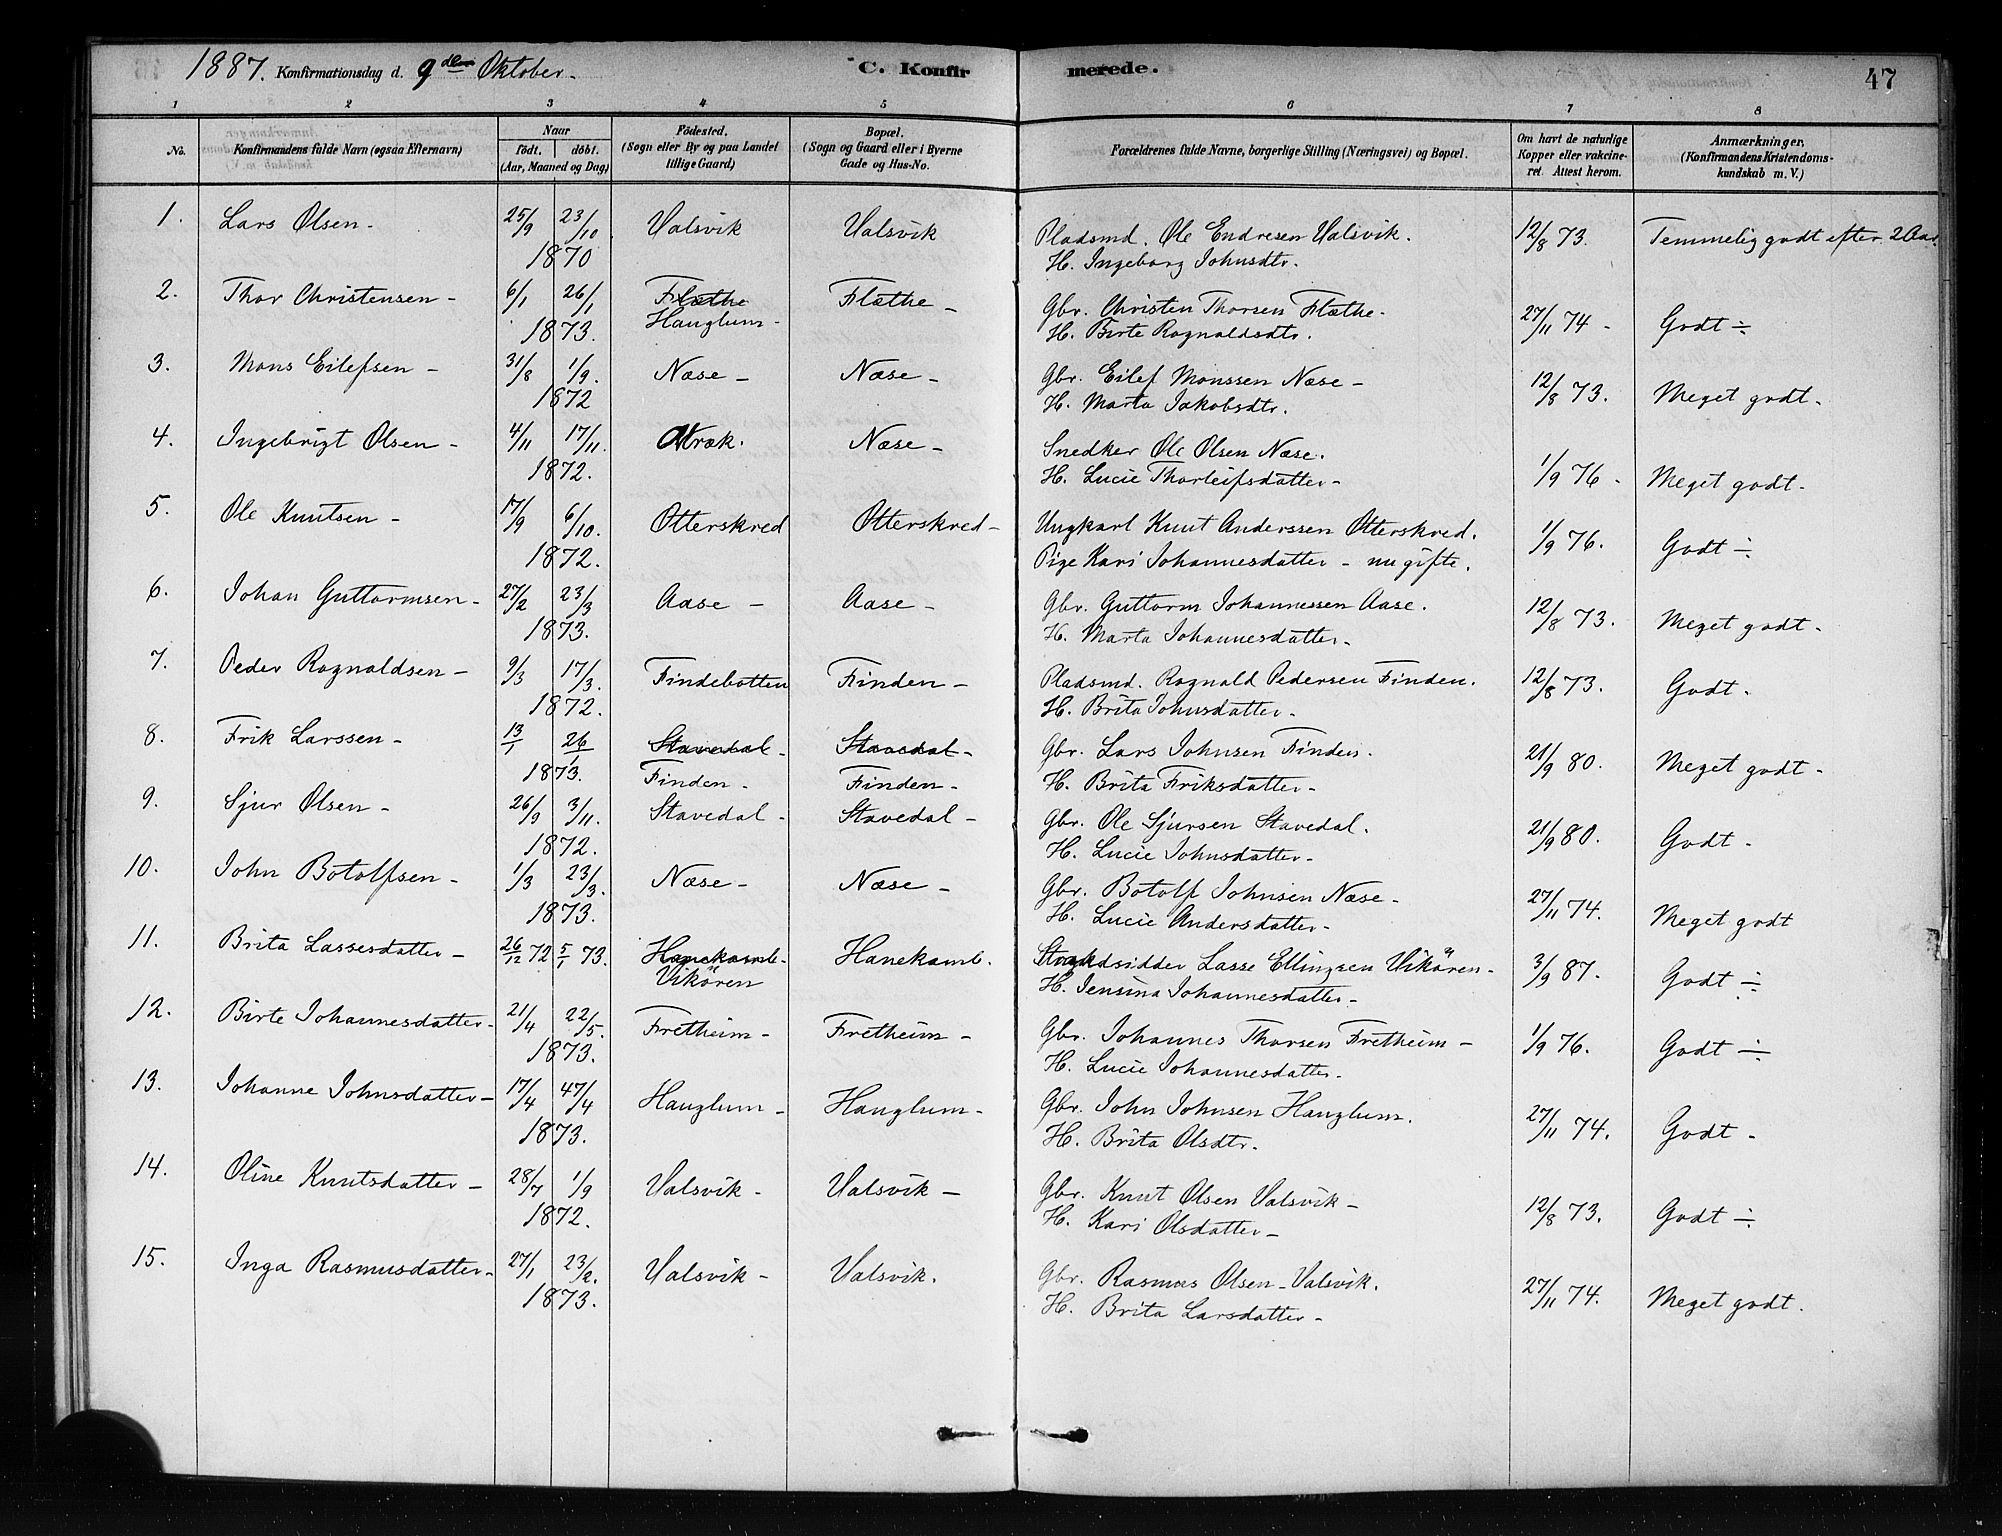 1887. Konfirmationsdag d. 9den Oktober. C. Konfirmerede. 47
1 2 3 4 5 6 7 8
No. Konfirmandens fulde Navn (ogsaa Efternavn) Naar födt. döbt. (Aar, Maaned og Dag) Födested. (Sogn eller By og paa Landet tillige Gaard) Bopæl. (Sogn og Gaard eller i Byerne Gade og Hus-No. Forældrenes fulde Navne, borgerlige Stilling (Næringsvei) og Bopæl. Om havt de naturlige Kopper eller vakcineret. Attest herom. Anmærkninger. (Konfirmandens Kristendomskundskab m. V.)
1. Lars Olsen - 25/9 23/10 Valsvik Valsvik Pladsmd. Ole Endresen Valsvik. 12/8 73. Temmelig godt efter 2 Aar.
1870 H. Ingeborg Johnsdtr.
2. Thor Christensen - 6/1 26/1 Flæthe Flæthe - Gbr. Christen Thorsen Flæthe. 27/11 74 - Godt ÷
1873. Hauglum - H. Birte Rognaldsdtr.
3. Mons Eilefsen - 31/8 1/9. Næse - Næse - Gbr. Eilef Monssen Næse - 12/8 73. Meget godt.
1872 H. Marta Jakobsdtr.
4. Ingebrigt Olsen - 4/11 17/11. Næse - Snedker Ole Olsen Næse. 1/9 76 - Meget godt.
1872. H. Lucie Thorleifsdatter -
5. Ole Knutsen - 17/9 6/10. Otterskred Otterskred - Ungkarl Knut Anderssen Otterskred. 1/9 76. Godt ÷
1872. Pige Kari Johannesdatter - nu gifte.
6. Johan Guttormsen - 27/2 23/3 Aase - Aase - Gbr. Guttorm Johannessen Aase. 12/8 73. Meget godt.
1873. H. Marta Johannesdatter -
7. Peder Rognaldsen - 9/3 17/3. Findebotten Finden - Pladsmd. Rognald Pedersen Finden. 12/8 73. Godt.
1872. H. Brita Johnsdatter -
8. Frik Larssen - 13/1 26/1 Stavedal - Stavedal - Gbr. Lars Johnsen Finden. 21/9 80. Meget godt -
1873. Finden - Finden - H. Brita Friksdatter -
9. Sjur Olsen - 26/9 3/11. Stavedal - Stavedal - Gbr. Ole Sjursen Stavedal. 21/9 80. Godt -
1872. H. Lucie Johnsdatter -
10. John Botolfsen - 1/3 23/3. Næse - Næse - Gbr. Botolf Johnsen Næse - 27/11 74. Meget godt
1873. H. Lucie Andersdatter -
11. Brita Lassesdatter - 26/12 72 5/1 73. Hanekamb. Hanekamb. Strandsidder Lasse Ellingsen Vikören - 3/9 87. Godt ÷
Vikören H. Jensina Johannesdatter -
12. Birte Johannesdatter - 21/4 22/5. Fretheim - Fretheim - Gbr. Johannes Thorsen Fretheim - 1/9 76. Godt ÷
1873. H. Lucie Johannesdatter -
13. Johanne Johnsdatter - 17/4 47/4 Hauglum - Hauglum - Gbr. John Johnsen Hauglum. 27/11 74. Godt -
1873. H. Brita Olsdtr.
14. Oline Knutsdatter - 28/7 1/9 Valsvik - Valsvik - Gbr. Knut Olsen Valsvik - 12/8 73. Godt ÷
1872. H. Kari Olsdatter -
15. Inga Rasmusdatter - 27/1 23/2. Valsvik - Valsvik. Gbr. Rasmus Olsen - Valsvik. 27/11 74. Meget godt.
1873. H. Brita Larsdatter -